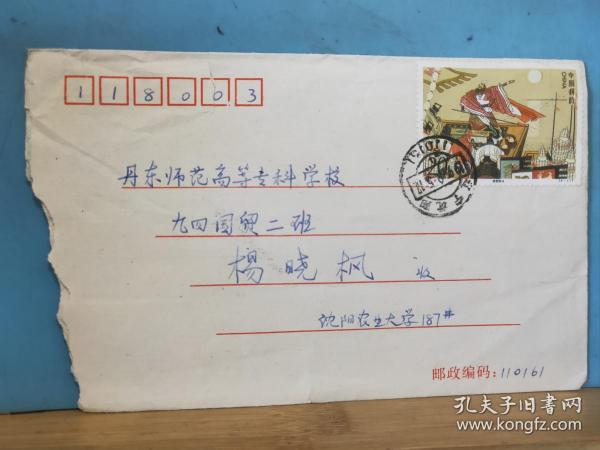 118003
中国邮政
CHINA
丹东师范高等专科学校
九四国贸二班
杨晓枫 收
沈阳农业大学187#
邮政编码:110161
孔夫子旧书网
www.kongfz.com